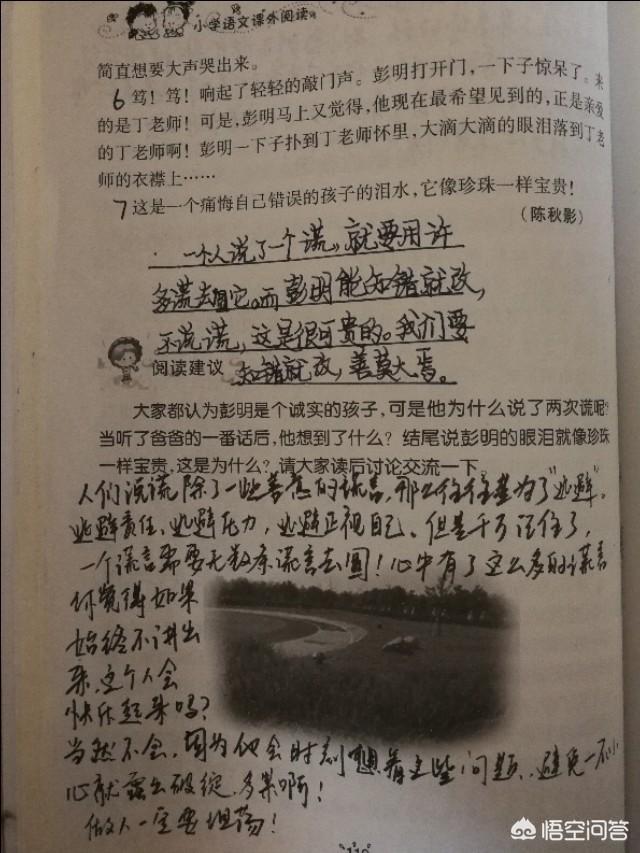 小学语文课外阅读
简直想要大声哭出来。
6 笃！笃！响起了轻轻的敲门声。彭明打开门，一下子惊呆了。来
的是丁老师！可是，彭明马上又觉得，他现在最希望见到的，正是亲爱
的丁老师啊！彭明一下子扑到丁老师怀里，大滴大滴的眼泪落到丁老
师的衣襟上……
7 这是一个痛悔自己错误的孩子的泪水，它像珍珠一样宝贵！
（陈秋影）
一个人说了一个谎，就要用许
多谎去圆它。而彭明能知错就改，
不说谎，这是很可贵的。我们要
阅读建议 知错就改，善莫大焉。
大家都认为彭明是个诚实的孩子，可是他为什么说了两次谎呢？
当听了爸爸的一番话后，他想到了什么？结尾说彭明的眼泪就像珍珠
一样宝贵，这是为什么？请大家读后讨论交流一下。
人们说谎除了一些善意的谎言，那么往往是为了“逃避”。
逃避责任、逃避压力，逃避正视自己、但是千万记住了，
一个谎言需要无数条谎言去圆！心中有了这么多的谎言
你觉得如果
始终不讲出
来，这个人会
快乐起来吗？
当然不会，因为他会时刻想着这些问题、避免一不小
心就露出破绽，多累啊！
做人一定要坦荡！
悟空问答